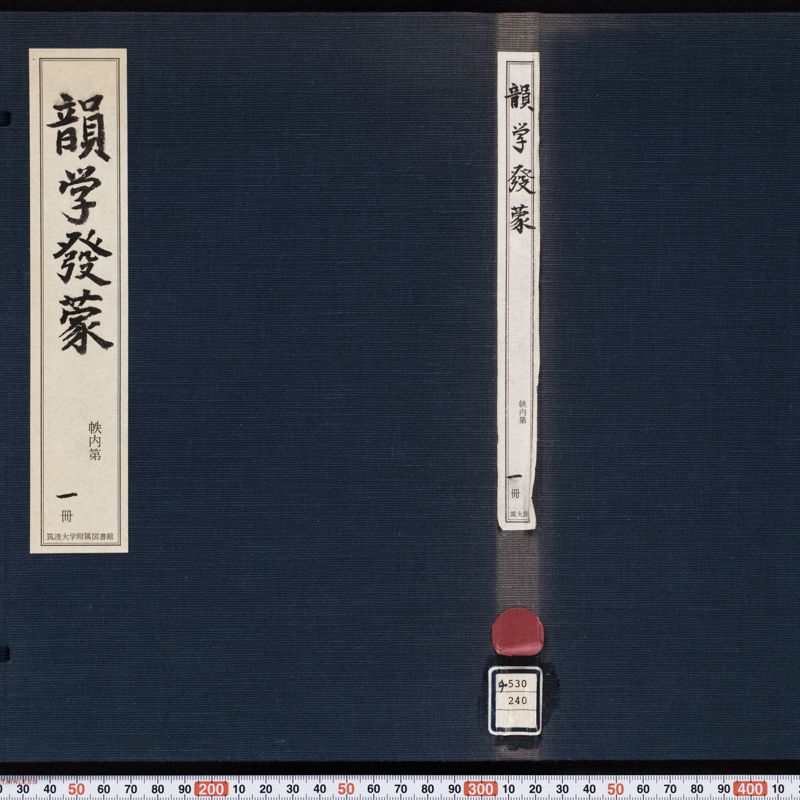 韻学發蒙
帙内第
一冊
筑波大学附属図書館
韻学發蒙
帙内第
一冊
筑大
530
240
STAINLESS
30 40 50 60 70 80 90 200 10 20 30 40 50 60 70 80 90 300 10 20 30 40 50 60 70 80 90 400 10